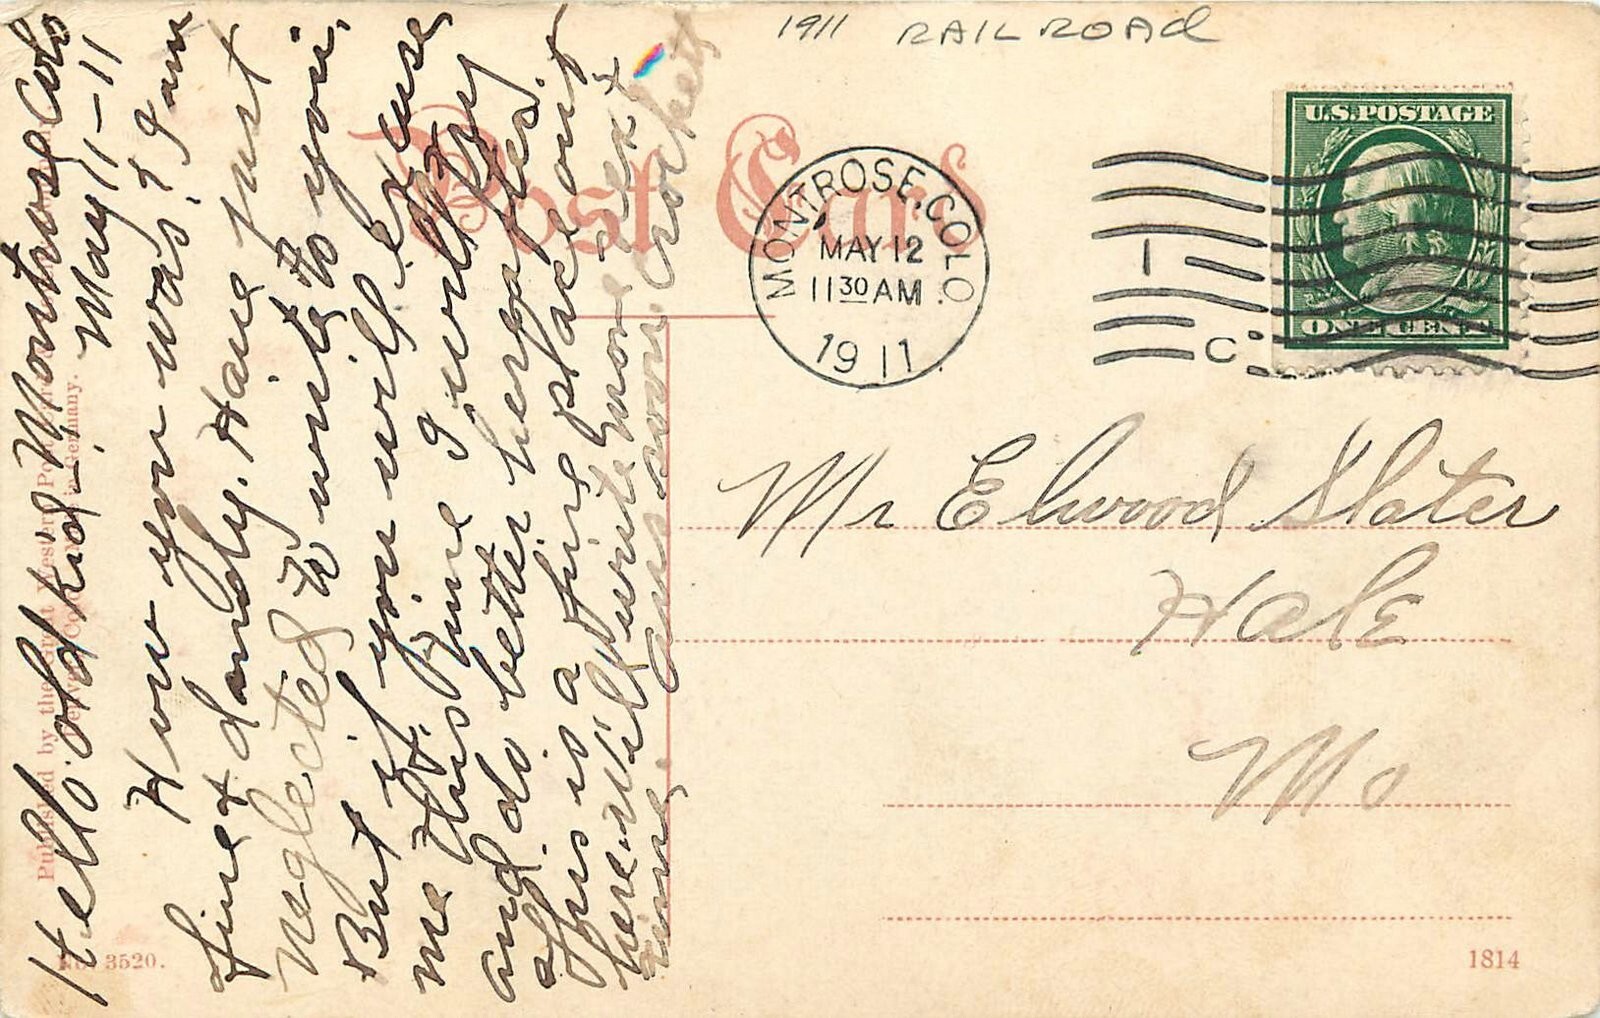 1911 RAILROAD
Post Card
U.S. POSTAGE
ONE CENT
MONTROSE, COLO.
MAY 12
11 30 AM
1911
1
C
Mr Elwood Slater
Hale
Mo
1814
No. 3520.
Published by the Great Western Post Card
Denver, Colo.
in Germany.
Hello old kid:- Montrose Colo
May 11-11
How you was? I am
fine & dandy. Have just
neglected to write to you.
But if you will excuse
me this time I will try
and do better hereafter.
This is a fine place out
here. Will write more next
time. ans soon. Crockett